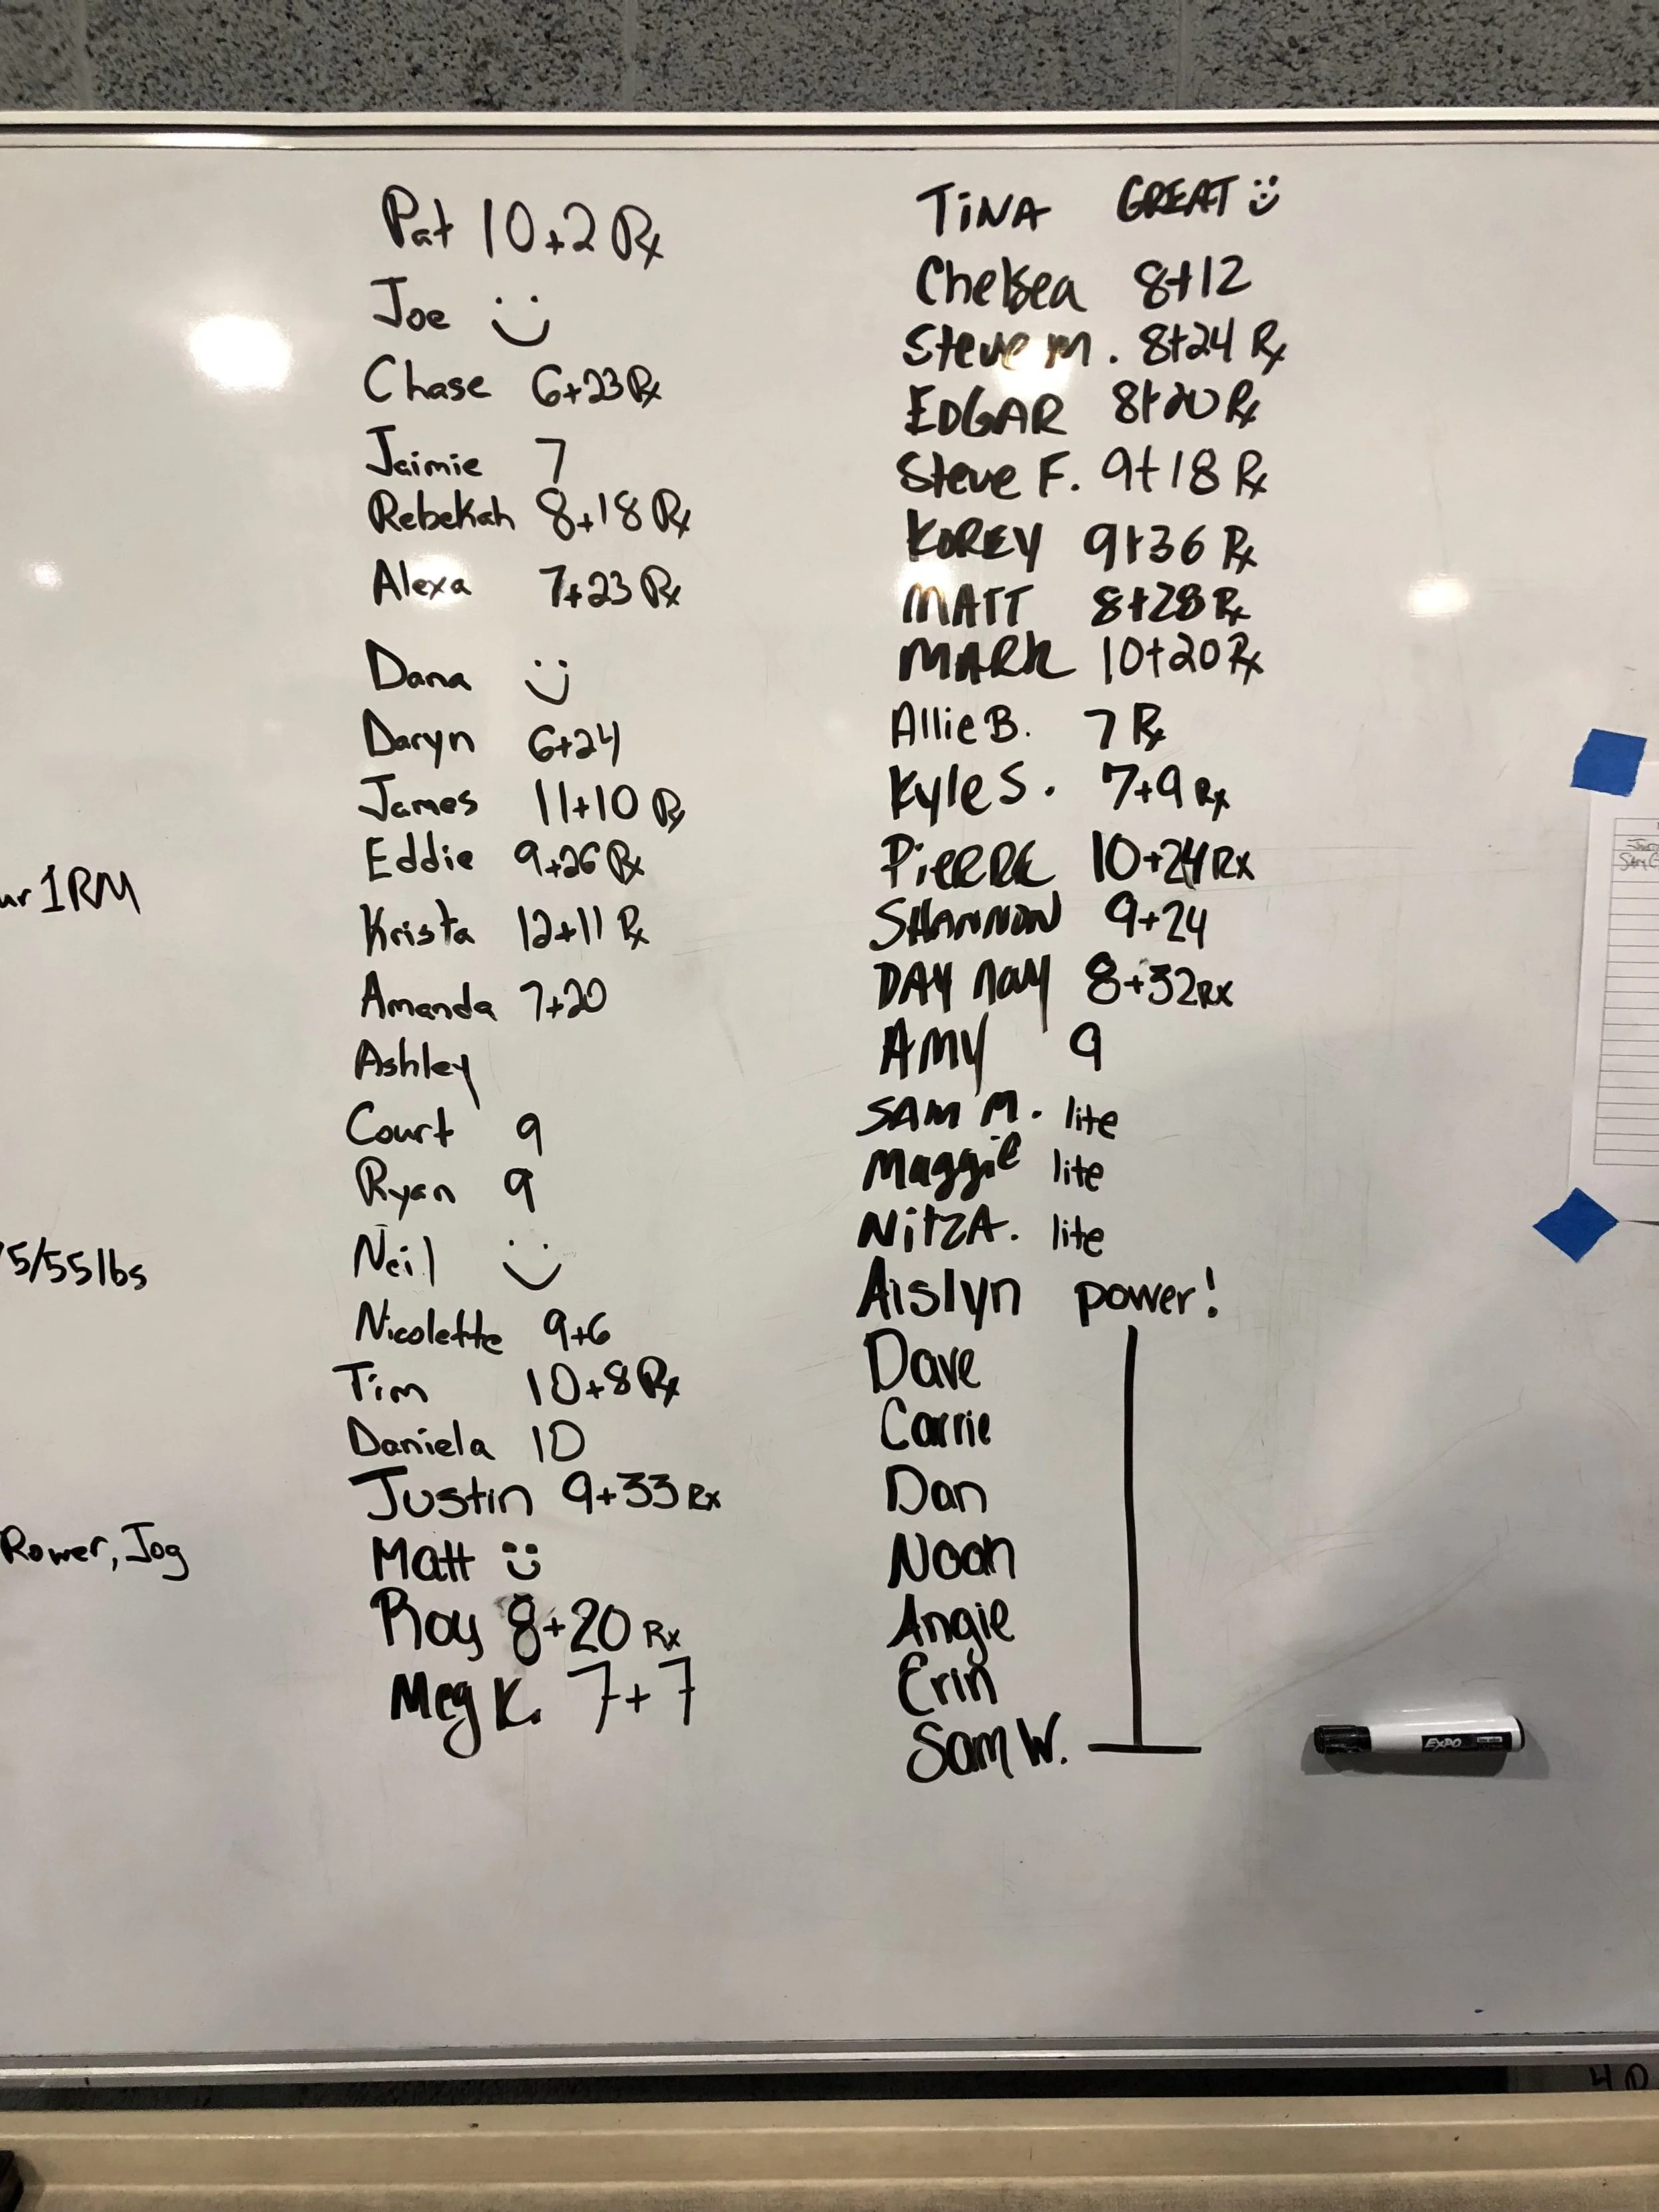 Pat 10+2 Rx
Joe :)
Chase 6+23 Rx
Jaimie 7
Rebekah 8+18 Rx
Alexa 7+23 Rx
Dana :)
Daryn 6+24
James 11+10 Rx
Eddie 9+26 Rx
Krista 12+11 Rx
Amanda 7+20
Ashley
Court 9
Ryan 9
Neil :)
Nicolette 9+6
Tim 10+8 Rx
Daniela 10
Justin 9+33 Rx
Matt :)
Roy 8+20 Rx
Meg K. 7+7
TiNA GREAT :)
Chelsea 8+12
Steve M. 8+24 Rx
EDGAR 8+20 Rx
Steve F. 9+18 Rx
KOREY 9+36 Rx
MATT 8+28 Rx
MARK 10+20 Rx
Allie B. 7 Rx
Kyle S. 7+9 Rx
PiERRE 10+24 Rx
SHANNON 9+24
DAY nay 8+32 RX
AMY 9
SAM M. lite
Maggie lite
NitzA. lite
Aislyn power!
Dave
Carrie
Dan
Noah
Angie
Erin
Sam W.
1RM
5/55 lbs
Rower, Jog
EXPO